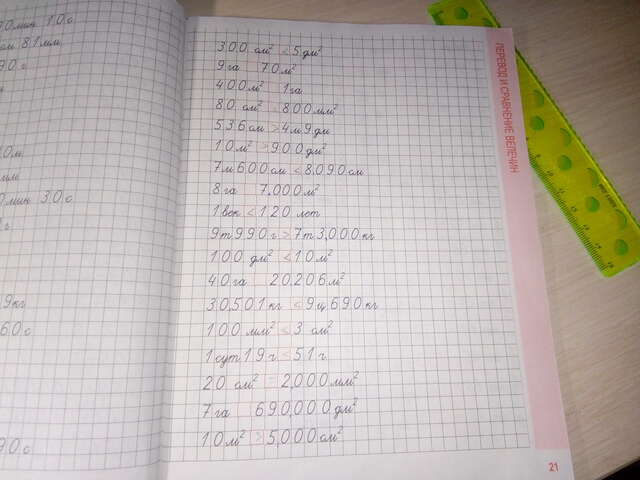 0мин 10с
см 81мм
90с
0м
мм
0мин 30с
г
9кг
60с
90с
300 см² < 5 дм²
9 га 70 м²
400 м² 1 га
80 см² < 800 мм²
536 см > 4 м 9 дм
10 м² > 900 дм²
7 м 600 см < 8.090 см
8 га 7.000 м²
1 век < 120 лет
9 т 990 г > 7 т 3.000 кг
100 дм² < 10 м²
40 га 20206 м²
30.501 кг < 9 ц 690 кг
100 мм² < 3 см²
1 сут 19 ч < 51 ч
20 см² = 2.000 мм²
7 га 690.000 дм²
10 м² > 5.000 см²
ПЕРЕВОД И СРАВНЕНИЕ ВЕЛИЧИН
21